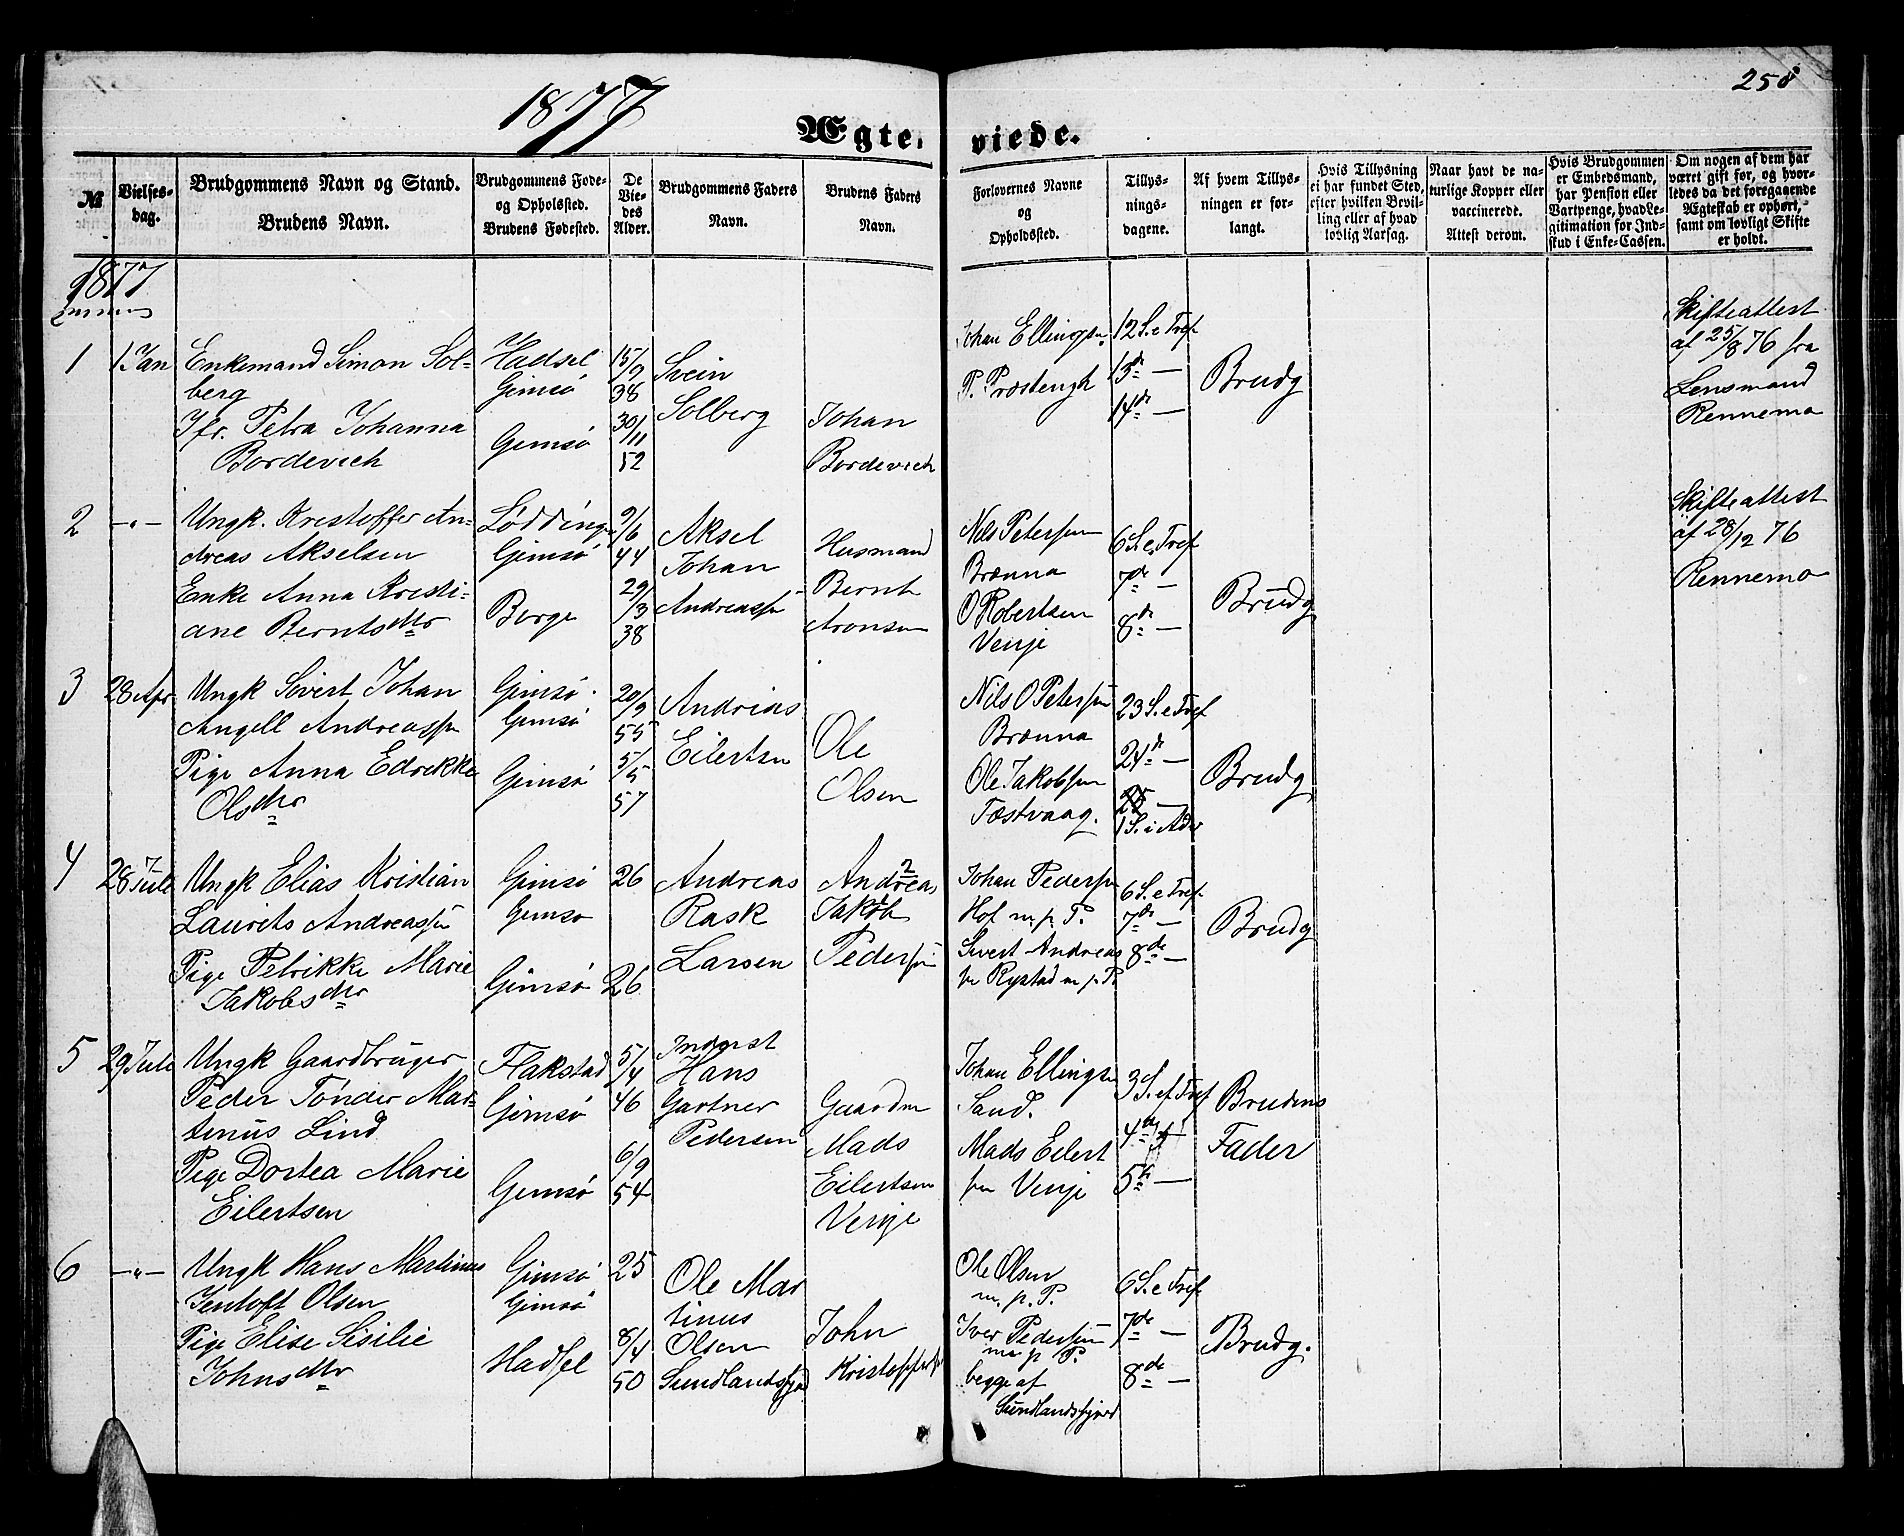 1877
258
Ægte,
viede.
№
Vielses-
dag.
Brudgommens Navn og Stand.
Brudens Navn.
Brudgommens Føde-
og Opholdssted.
Brudens Fødested.
De
Vie-
des
Alder.
Brudgommens Faders
Navn.
Brudens Faders
Navn.
Forlovernes Navne
og
Opholdssted.
Tillys-
nings-
dagene.
Af hvem Tillys-
ningen er for-
langt.
Hvis Tillysning
ei har fundet Sted,
efter hvilken Bevil-
ling eller af hvad
lovlig Aarsag.
Naar havt de na-
turlige Kopper eller
vaccinerede.
Attest derom.
Hvis Brudgommen
er Embedsmand,
har Pension eller
Vartpenge, hvad Le-
gitimation for Ind-
skud i Enke-Cassen.
Om nogen af dem har
været gift før, og hvor-
ledes da det foregaaende
Ægteskab er ophørt,
samt om lovligt Skifte
er holdt.
1877
1
1 Jan
Enkemand Simon Sol-
berg
Jfr. Petra Johanna
Bordevich
Hadsel
Gimsø
Gimsø
15/9
38
30/11
52
Svein
Solberg
Johan
Bordevich
Johan Ellingsen
P. Præstengh
12 S. e Tref
13de —
14de —
Brudg
Skifteattest
af 25/8 76 fra
Lensmand
Rennemo
2
—"—
Ungk. Krestoffer An-
dreas Akselsen
Enke Anna Kristi-
ane Berntsdtr
Lødding
Gimsø
Borge
9/6
44
29/3
38
Aksel
Johan
Andreassen
Husmand
Bernt
Aronsen
Nils Petersen
Brænna
O Robertsen
Venje
6 S. e. Tref
7de —
8de —
Brudg
Skifteattest
af 28/12 76
Rennemo
3
28 Apr
Ungk Sivert Johan
Angell Andreassen
Pige Anna Edrekke
Olsdtr
Gimsø
Gimsø
Gimsø
20/9
55
5/5
57
Andreas
Eilertsen
Ole
Olsen
Nils O Petersen
Brænna
Ole Jakobsen
Tæstvaag.
23 S. e Tref
24de —
25 —
1 S. i Adv
Brudg
4
28 Juli
Ungk Elias Kristian
Laurits Andreassen
Pige Petrikke Marie
Jakobsdtr
Gimsø
Gimsø
Gimsø
26
26
Andreas
Rask
Larsen
Andreas
Jakob
Pedersen
Johan Pedersen
Hof m. p. P.
Sivert Andreas
sen Rystad m. p. P.
6 S. e Tref
7de —
8de —
Brudg
5
29 Juli
Ungk Gaardbruger
Peder Tønder Mar-
tinus Lind
Pige Dortea Marie
Eilertsen
Flakstad
Gimsø
Gimsø
5/4
46
6/9
54
Inderst
Hans
Gartner
Pedersen
Gaardm
Mads
Eilertsen
Venje
Johan Ellingsen
Sand.
Mads Eilert
sen Venje
3 S. ef Tref
4de
5te —
Brudens
Fader
6
—"—
Ungk Hans Martinus
Jentoft Olsen
Pige Elise Sisilie
Johnsdtr
Gimsø
Gimsø
Hadsel
25
8/4
50
Ole Mar
tinus
Olsen
Sundlandsfjord
John
Kristoffersen
Ole Olsen
m. p. P.
Iver Pedersen
m. p. P.
begge af
Sundlandsfjord
6 S. e Tref
7de —
8de —
Brudg.